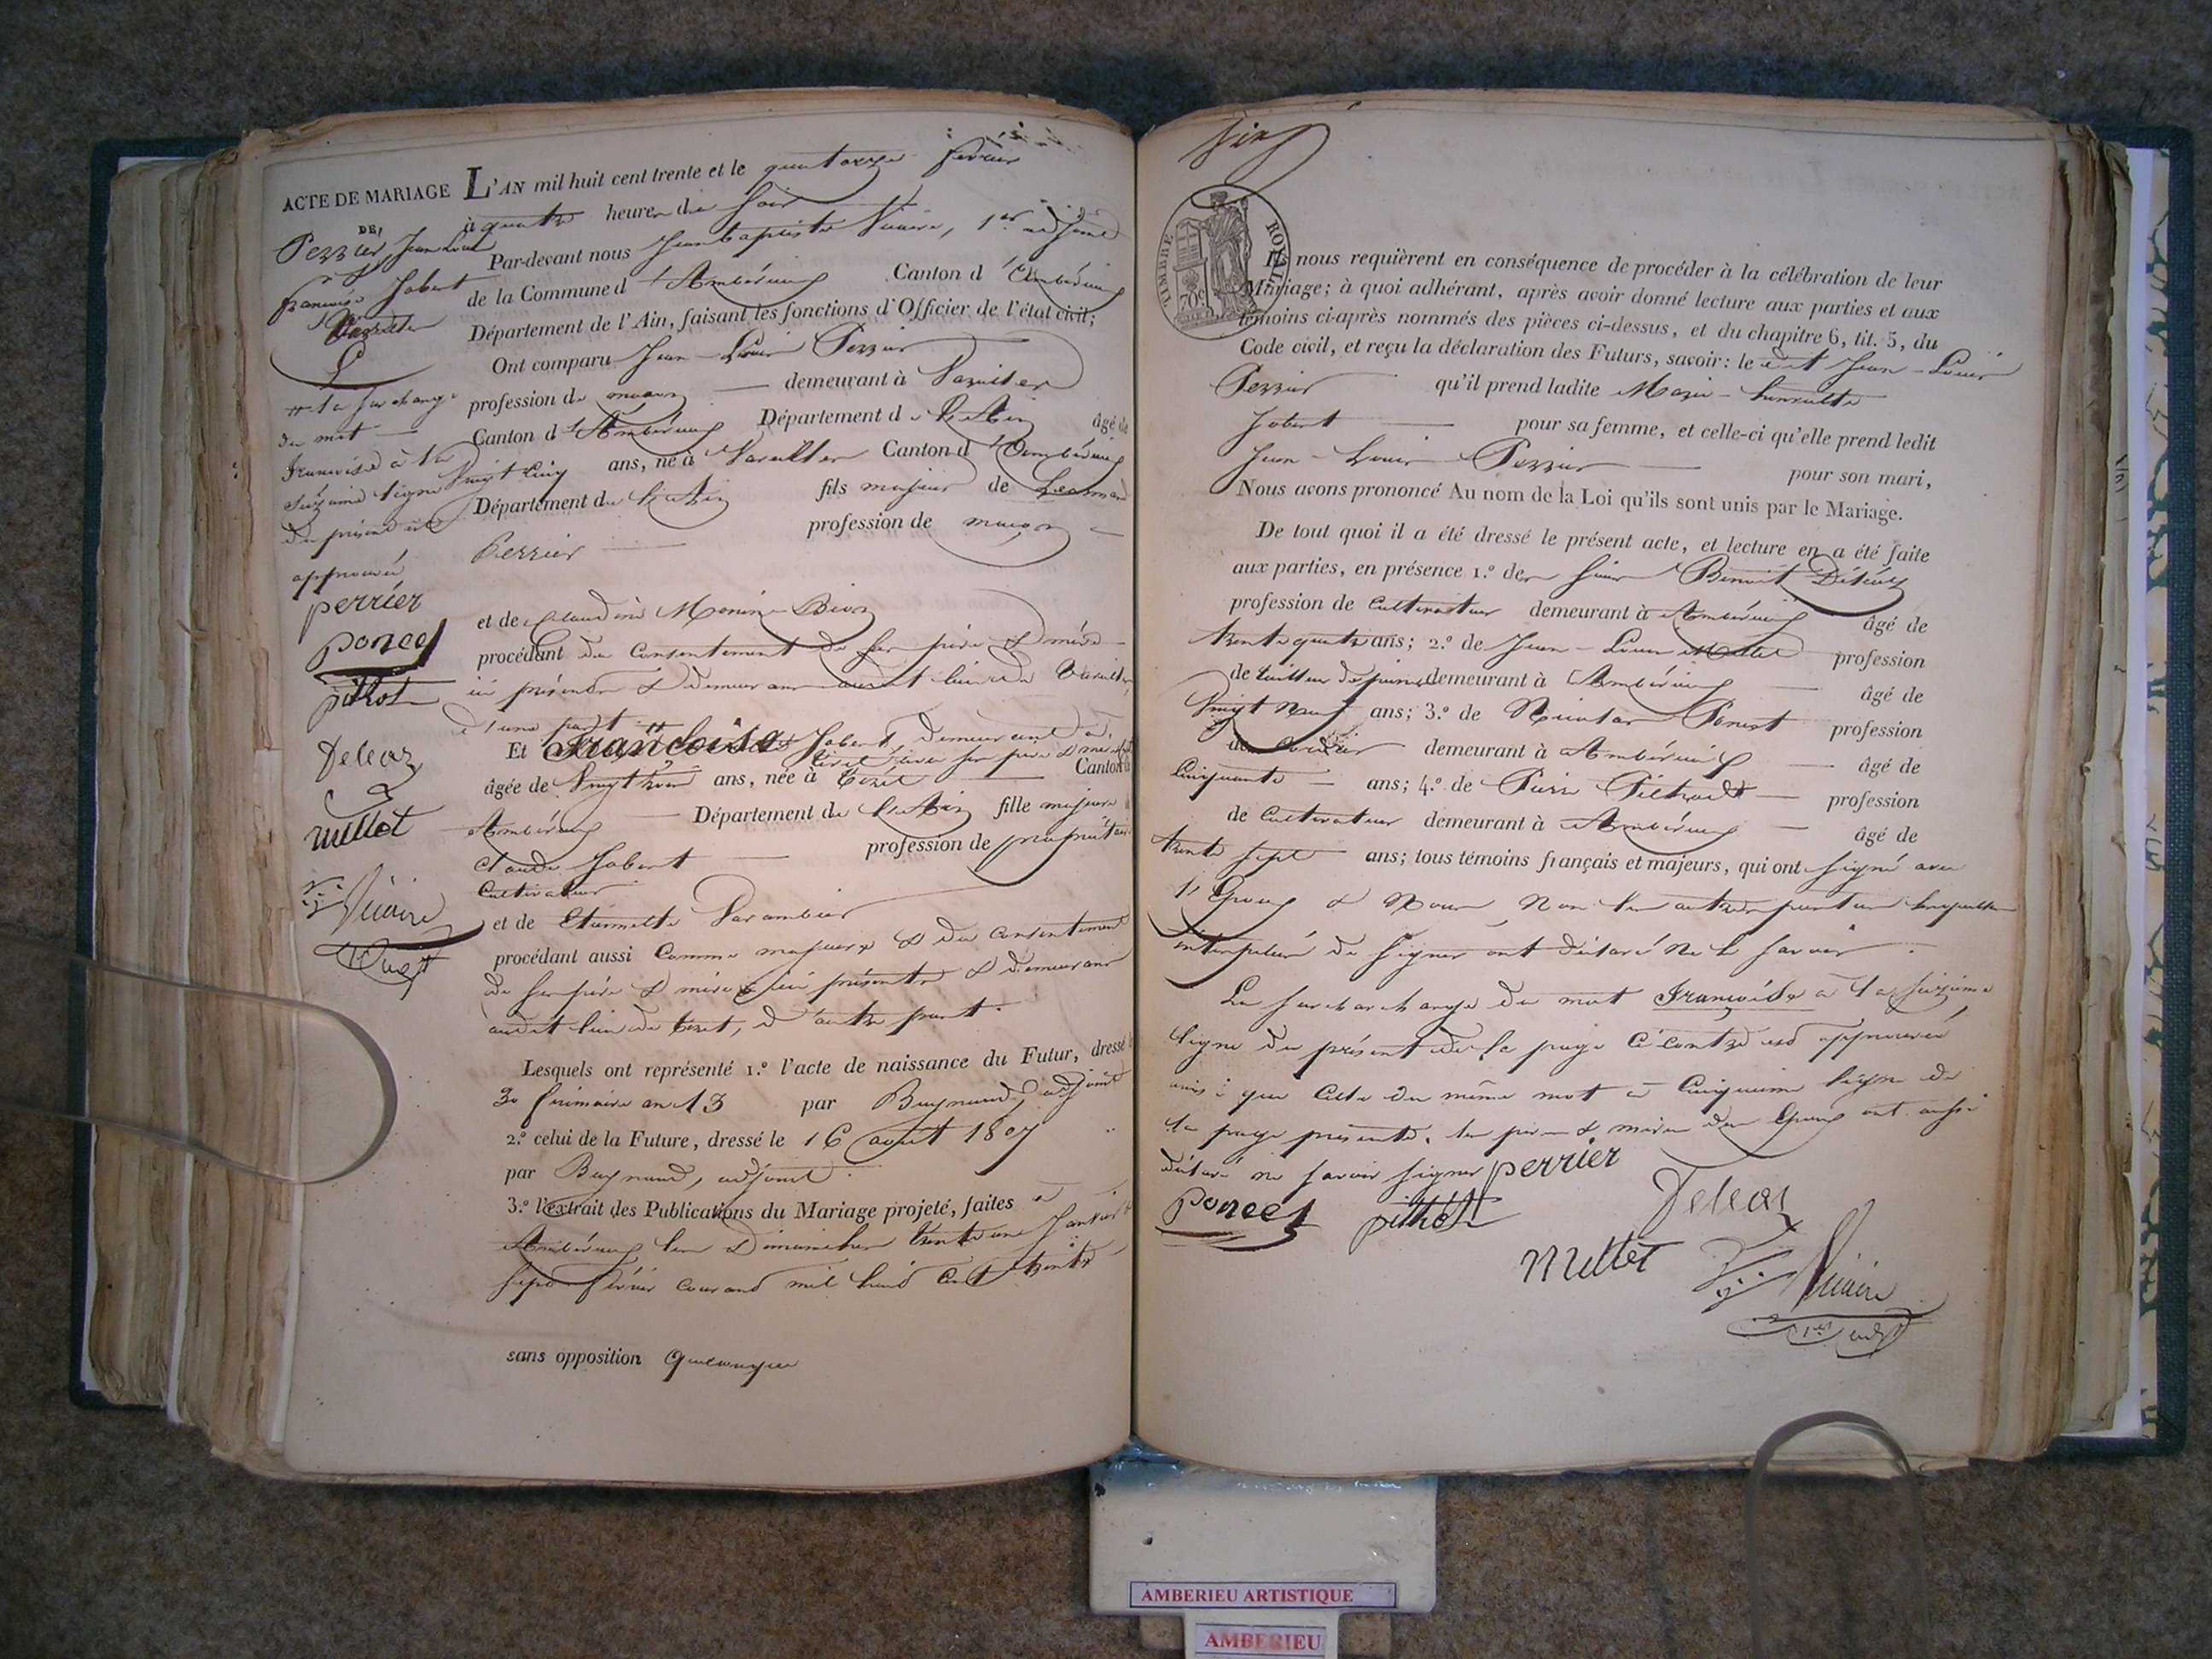 ACTE DE MARIAGE
DE
Perrier, Jean Louis
&
françoise Jobert
Vareilles
la surcharge
du mot
françoise à la
seizième ligne
du présent acte
approuvée
perrier
poncet
pithot
Deleaz
millet
Vicaire
L'AN mil huit cent trente et le quatorze février
à quatre heures du soir
Par-devant nous Jean baptiste Vicaire, 1er adjoint
de la Commune d'Ambérieux Canton d'Ambérieux
Département de l'Ain, faisant les fonctions d'Officier de l'état civil;
Ont comparu Jean-Louis Perrier
profession de maçon demeurant à Vareilles
Canton d'Ambérieux Département de l'Ain âgé de
Vingt cinq ans, né à Vareilles Canton d'Ambérieux
Département de l'Ain fils majeur de
Perrier profession de maçon
et de Claudine
procédant du consentement de ses père & mère
ici présents & demeurans audit lieu de Vareilles
d'une part
Et Françoise Jobert, demeurant à
Tiret avec ses père & mère
âgée de Vingt trois ans, née à Tiret Canton d'
Ambérieux Département de l'Ain fille majeure
Claude Jobert profession de propriétaire
Cultivateur
et de Etiennette Varambier
procédant aussi Comme majeure & du consentement
de ses père & mère ici présents & demeurans
audit lieu de Tiret, d'autre part.
Lesquels ont représenté 1.º l'acte de naissance du Futur, dressé le
30 frimaire an 13 par Buynand, adjoint
2.º celui de la Future, dressé le 16 août 1807
par Buynand, adjoint
3.º l'extrait des Publications du Mariage projeté, faites à
Ambérieux les Dimanches trente un Janvier &
sept février courant mil huit cent trente
sans opposition quelconque
TIMBRE ROYAL
70c
Ils nous requièrent en conséquence de procéder à la célébration de leur
Mariage; à quoi adhérant, après avoir donné lecture aux parties et aux
témoins ci-après nommés des pièces ci-dessus, et du chapitre 6, tit. 5, du
Code civil, et reçu la déclaration des Futurs, savoir: le dit Jean-Louis
Perrier qu'il prend ladite
Jobert pour sa femme, et celle-ci qu'elle prend ledit
Jean-Louis Perrier pour son mari,
Nous avons prononcé Au nom de la Loi qu'ils sont unis par le Mariage.
De tout quoi il a été dressé le présent acte, et lecture en a été faite
aux parties, en présence 1.º des sieurs Benoit
profession de Cultivateur demeurant à Ambérieux âgé de
trente quatre ans; 2.º de Jean-Louis Millet profession
de demeurant à Ambérieux âgé de
Vingt neuf ans; 3.º de Nicolas Poncet profession
de demeurant à Ambérieux âgé de
Cinquante ans; 4.º de Pierre profession
de Cultivateur demeurant à Ambérieux âgé de
trente sept ans; tous témoins français et majeurs, qui ont signé avec
l'Epoux & Nous, Non les autres parties lesquelles
interpellées de signer ont déclaré ne le savoir.
La surcharcharge du mot françoise à la seizième
ligne du présent de la page ci contre est approuvée,
ainsi que celle du même mot à cinquième ligne de
la page présente. les pères & mères des Epoux ont aussi
déclaré ne savoir signer perrier
poncet pithot Deleaz
millet Vicaire
1er adj
AMBERIEU ARTISTIQUE
AMBERIEU